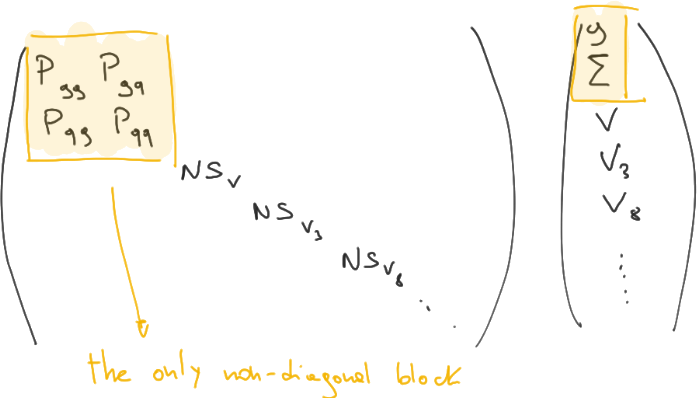 P_gg P_gq g
P_qg P_qq Σ
V
NS_V V_3
NS_V_3 V_8
NS_V_8
the only non-diagonal block